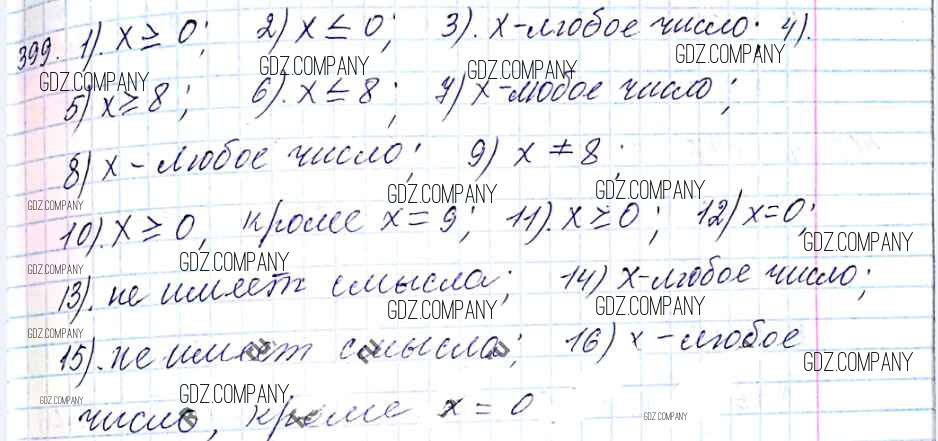 399. 1). x ≥ 0; 2) x ≤ 0; 3). x - любое число. 4).
GDZ.COMPANY GDZ.COMPANY GDZ.COMPANY GDZ.COMPANY
5) x ≥ 8; 6). x ≤ 8; 7) x - любое число;
8) x - любое число; 9) x ≠ 8.
GDZ.COMPANY GDZ.COMPANY GDZ.COMPANY
10). x ≥ 0, кроме x = 9; 11). x ≥ 0; 12) x = 0;
GDZ.COMPANY GDZ.COMPANY GDZ.COMPANY
13). не имеет смысла; 14) x - любое число;
GDZ.COMPANY GDZ.COMPANY GDZ.COMPANY
15). не имеет смысла; 16) x - любое
GDZ.COMPANY GDZ.COMPANY GDZ.COMPANY
число, кроме x = 0
GDZ.COMPANY